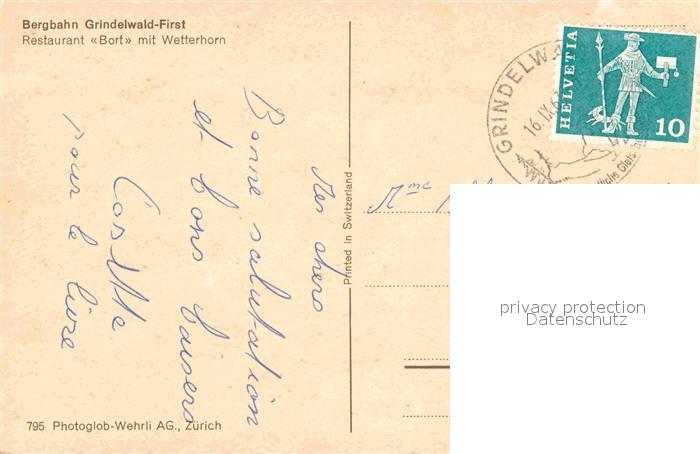 Bergbahn Grindelwald-First
Restaurant «Bort» mit Wetterhorn
Mes chers
Bonne salutation
et bons baisers
pour le livre
Printed in Switzerland
795 Photoglob-Wehrli AG., Zürich
GRINDELW
16.IX.6
HELVETIA
10
Mme
privacy protection
Datenschutz